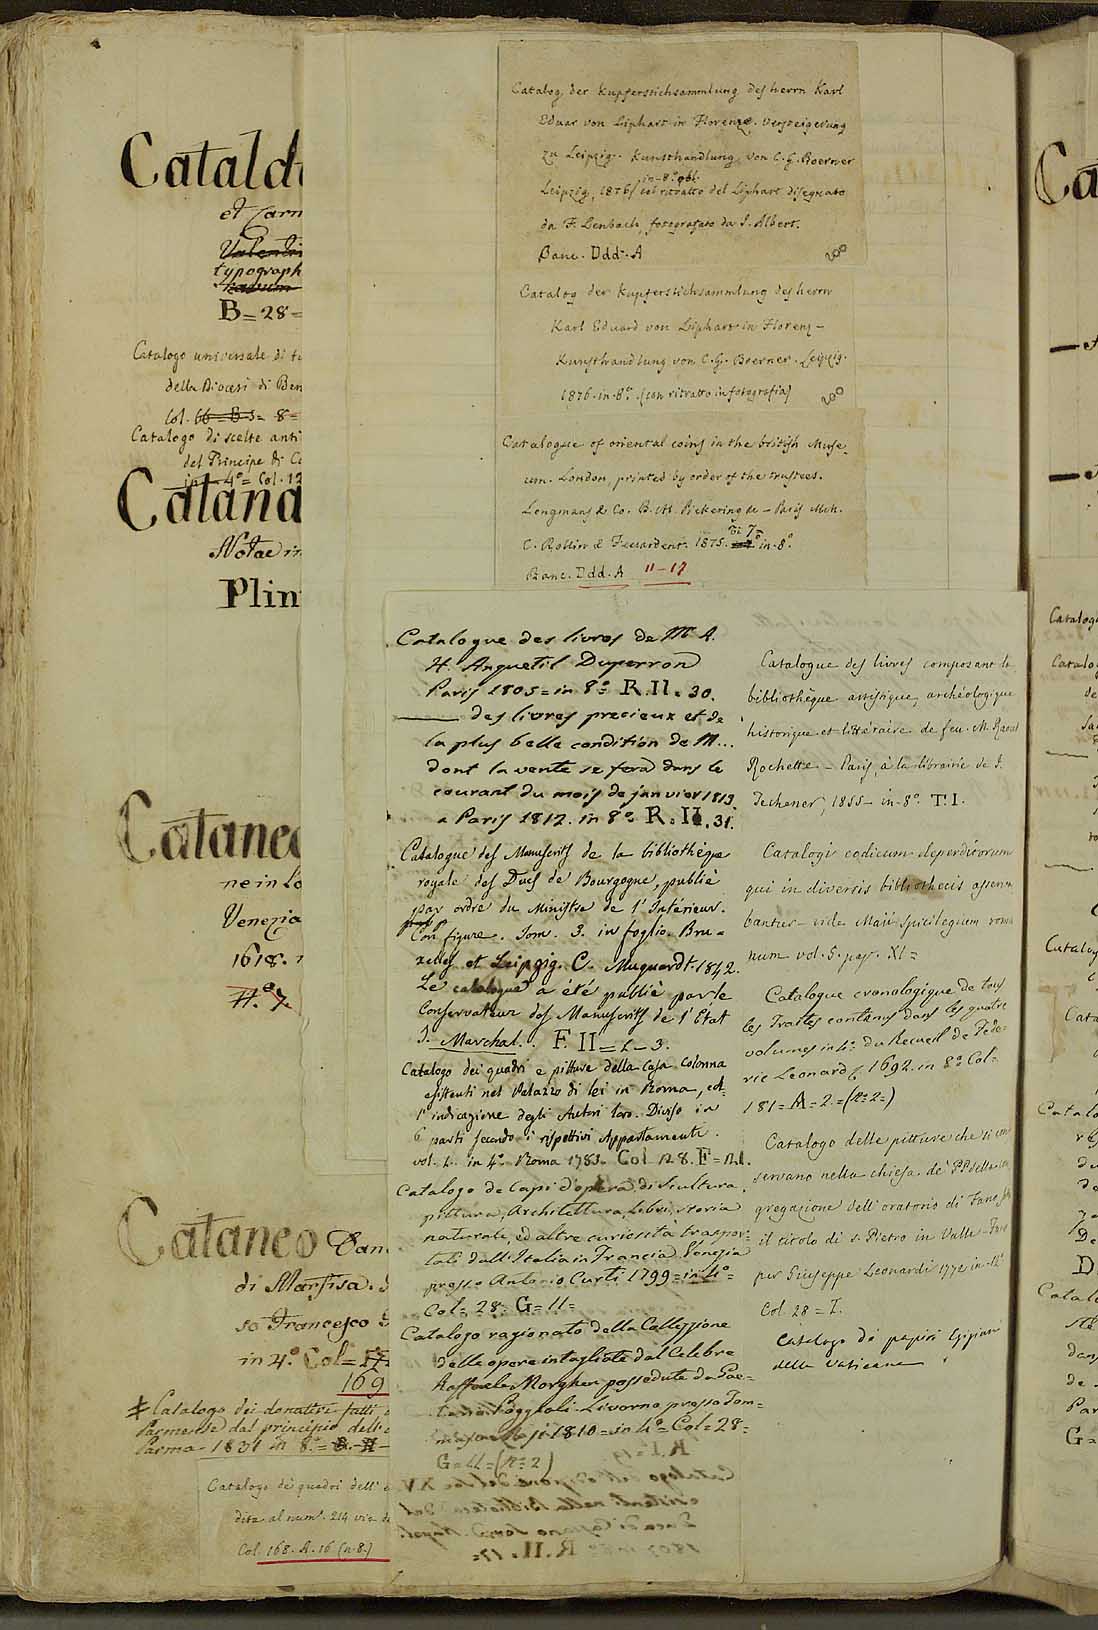 Catald
et Carm
Valentin
typograph
B=28=
Catalogo universale di tu
della Diocesi di Ben
Col. 66=B3= 8=
Catalogo di scelte anti
del Principe di C
in 4º= Col. 12
Catana
Notae in
Plin
Cataneo
ne in Lo
Venezia
1618.
H.º 7.
Cataneo Dan
di Marfisa.
so Francesco
in 4.º Col=
169
Catalogo dei donativi fatti
Parmense dal principio dell'
Parma 1831 in 8.º= B. H
Catalogo de' quadri dell'
dita al num. 214 via
Col. 168. A. 16 (n. 8.)
Catalog der Kupferstichsammlung des herrn Karl
Eduar von Liphart in Florenz. Versteigerung
zu Leipzig. Kunsthandlung von C. G. Boerner
in-8º obl.
Leipzig, 1876/ col ritratto del Liphart disegnato
da F. Lenbach, fotografato da J. Albert.
Banc. Ddd. A 200
Catalog der Kupferstichsammlung des herrn
Karl Eduard von Liphart in Florenz –
Kunsthandlung von C. G. Boerner. Leipzig.
1876. in-8º. (con ritratto in fotografia) 200
Catalogue of oriental coins in the british Muse
um. London, printed by order of the trustees.
Longmans & Co. B. M. Pickering &c – Paris Mch.
Ti 7=
C. Rollin & Feuardent. 1875. in-8º.
Banc. Ddd. A 11–17
Catalogue des livres de Mr A.
H. Anquetil Duperron
Paris 1805= in 8º= R.II. 30.
——— des livres precieux et de
la plus belle condition de M...
dont la vente se fera dans le
courant du mois de janvier 1813.
a Paris 1812. in 8º= R. II. 31.
Catalogue des Manuscrits de la bibliothèque
royale des Ducs de Bourgogne, publié
par ordre du Ministre de l'Intérieur.
Con figure. Tom. 3. in foglio. Bru=
xelles et Leipzig. C. Muquardt. 1842.
Le catalogue a été publié par le
Conservateur des Manuscrits de l'Etat
J. Marchal. F. II = L – 3.
Catalogo dei quadri e pitture della Casa Colonna
esistenti nel Palazzo di lei in Roma, col=
l'indicazione degli Autori loro. Diviso in
6 parti secondo i rispettivi Appartamenti.
vol. 1. in 4º. Roma 1783. Col. 128. F=12.
Catalogo de Capi d'opera di Scultura,
pittura, Architettura, Libri, storia
naturale, ed altre curiosità traspor=
tati dall'Italia in Francia Venezia
presso Antonio Curti 1799=in 4º=
Col= 28= G=11=
Catalogo ragionato della Collezzione
delle opere intagliate dal Celebre
Raffaele Morghen possedute da Gae=
tano Poggiali. Livorno presso Tom=
maso Masi 1810= in 4º= Col=28=
G=11=(n=2)
Catalogue des livres composant la
bibliothèque artistique, archéologique
historique et littéraire de feu M. Raoul
Rochette – Paris, à la librairie de J.
Techener, 1855– in-8º. T. I.
Catalogi codicum deperditorum
qui in diversis bibliothecis asserva
bantur – vide Maii Spicilegium roma
num vol. 5. pag. XI=
Catalogue cronologique de tous
les Traités contenus dans les quatre
volumes in 4º du Recueil de Féde=
ric Leonard &. 1692. in 8º Col=
181=A=2=(n=2=)
Catalogo delle pitture che si con
servano nella chiesa de' PP. della con
gregazione dell'oratorio di Fano sotto
il titolo di s. Pietro in Valle – Fano
per Giuseppe Leonardi 1772 in 4º
Col. 28=I.
Catalogo di papiri Egiziani
della Vaticana
Ca
Catalog
Catalo
Catalog
Cata
Catalo
D
Catalo
de
Par
G=